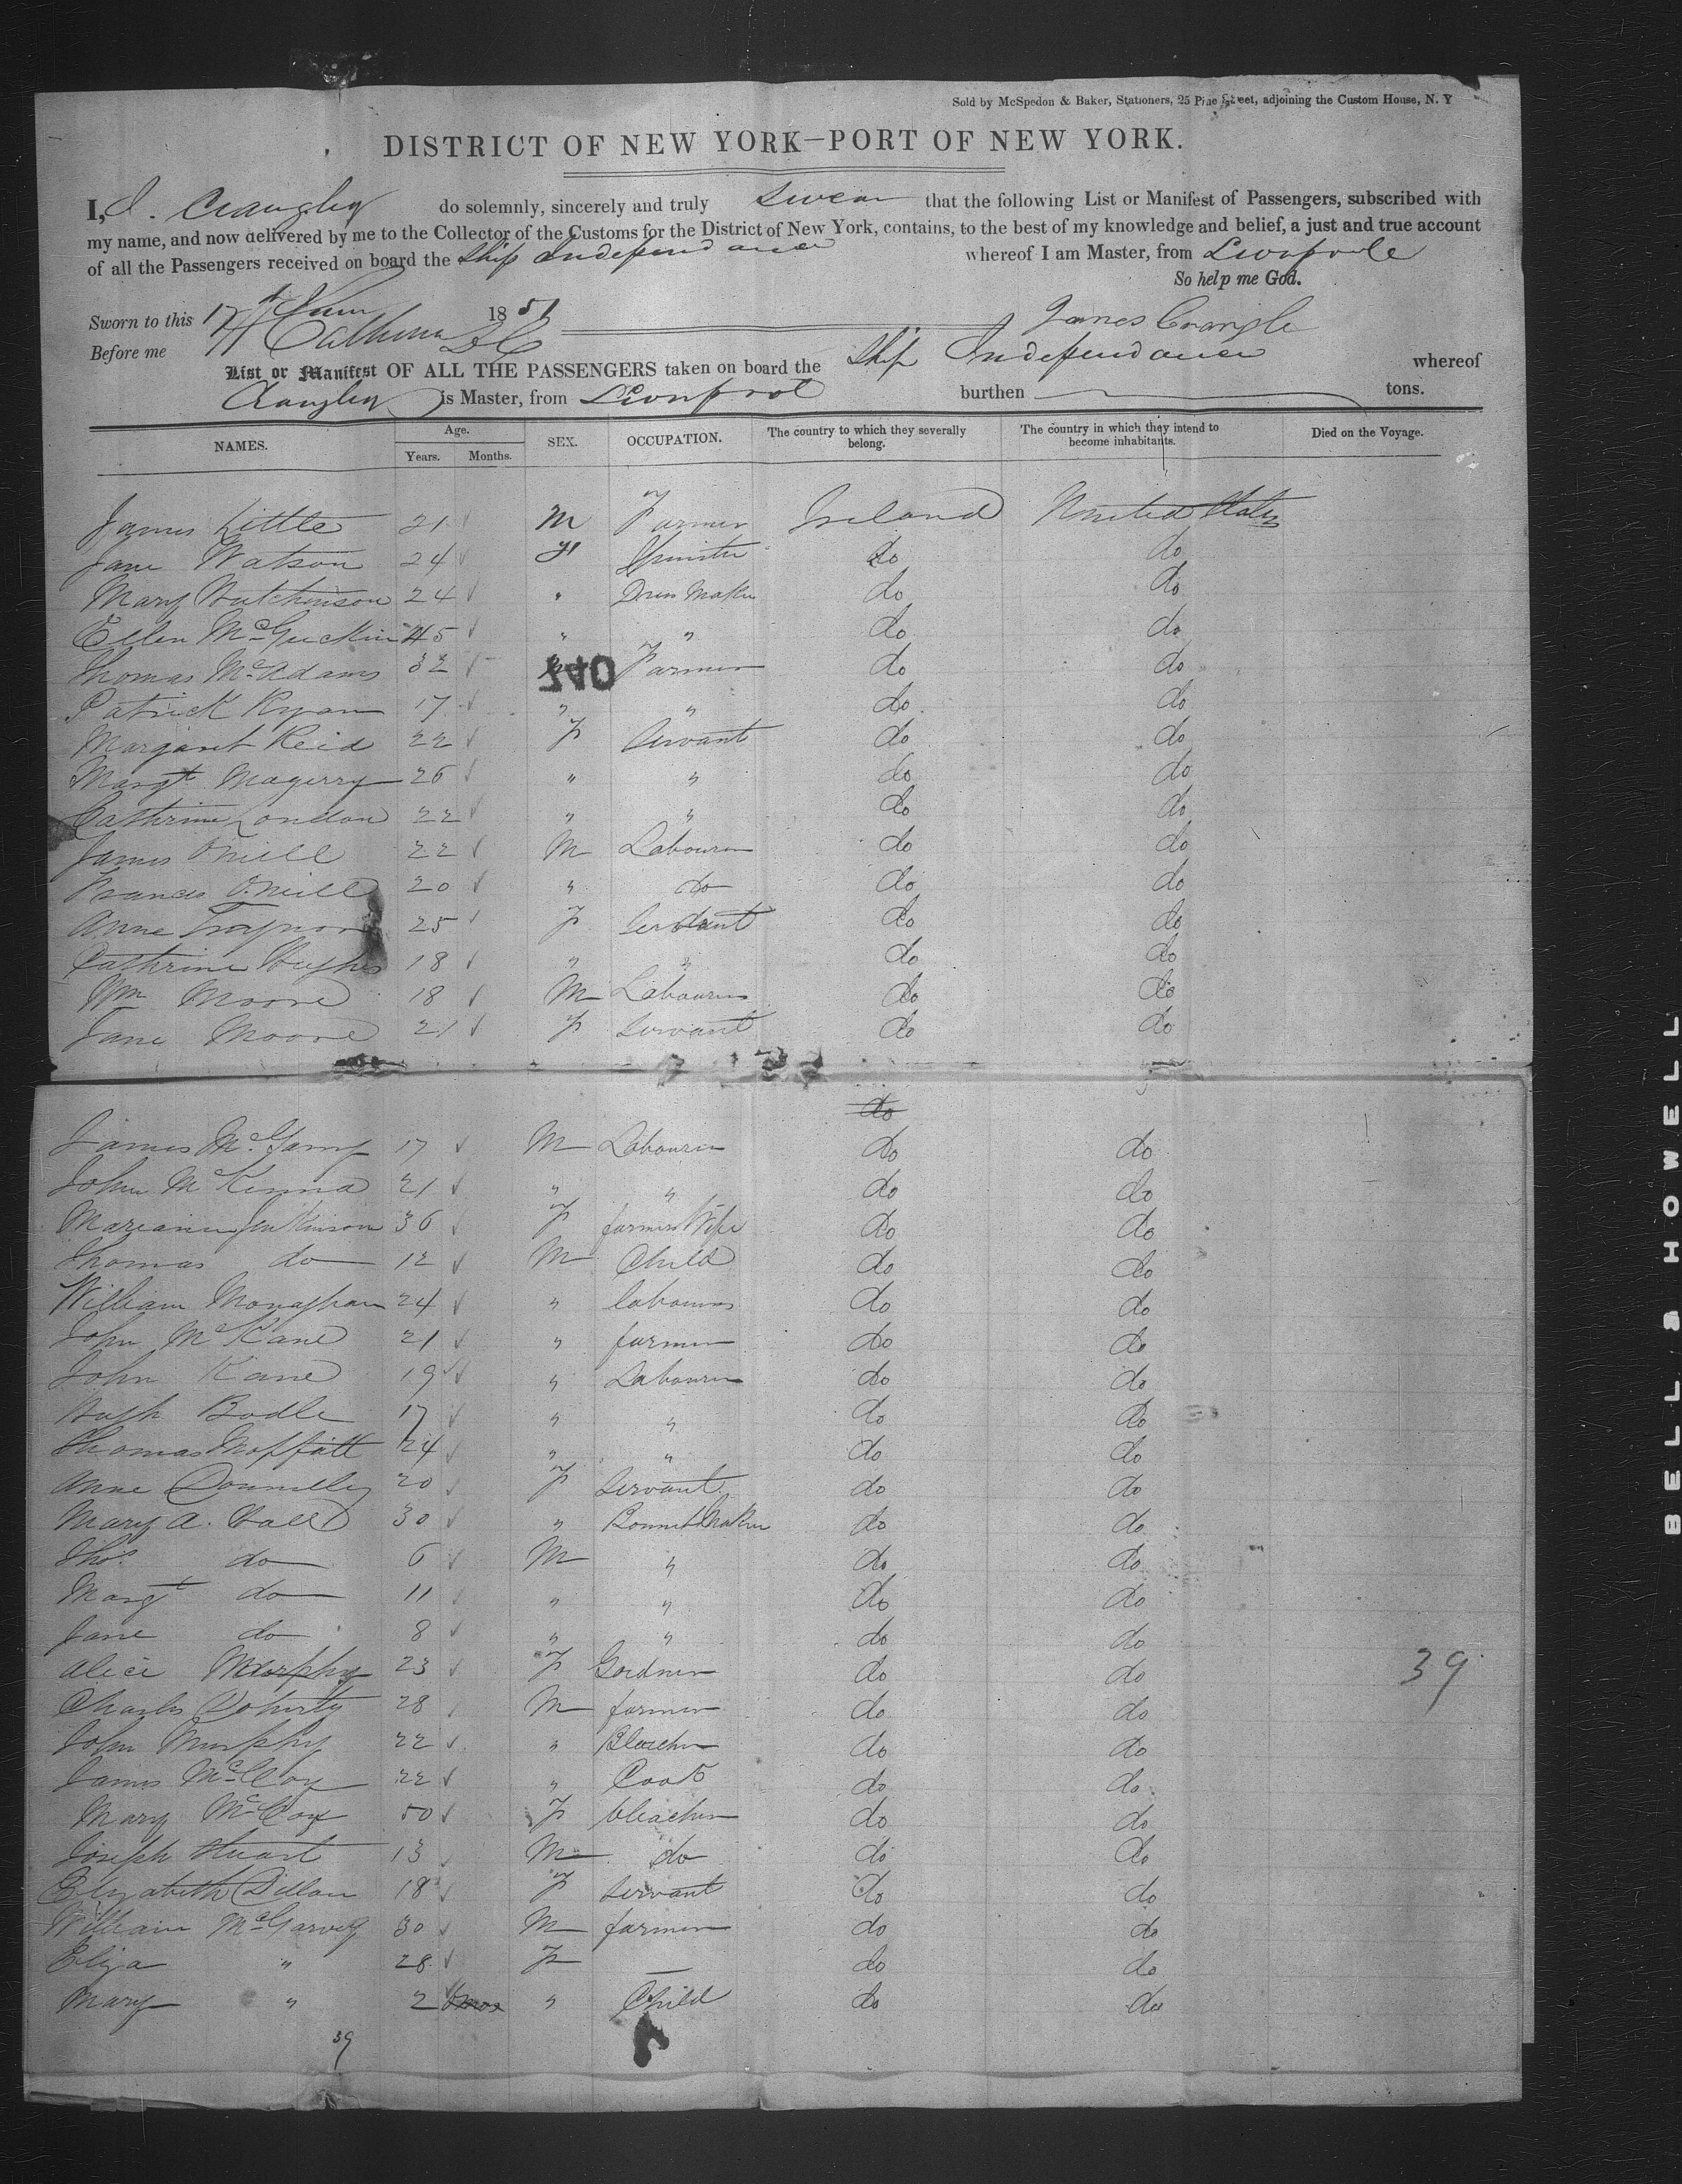 Sold by McSpedon & Baker, Stationers, 25 Pine Street, adjoining the Custom House, N. Y
DISTRICT OF NEW YORK—PORT OF NEW YORK.
I, J. Crangley do solemnly, sincerely and truly swear that the following List or Manifest of Passengers, subscribed with
my name, and now delivered by me to the Collector of the Customs for the District of New York, contains, to the best of my knowledge and belief, a just and true account
of all the Passengers received on board the Ship Independance whereof I am Master, from Liverpool
So help me God.
Sworn to this 17th June 1851 James Crangle
Before me
List or Manifest OF ALL THE PASSENGERS taken on board the Ship Independance whereof
Crangley is Master, from Liverpool burthen tons.
NAMES. Age. Years. Months. SEX. OCCUPATION. The country to which they severally belong. The country in which they intend to become inhabitants. Died on the Voyage.
James Little 21 M Farmer Ireland United States
Jane Watson 24 F Spinster do do
Mary Hutchinson 24 " Dress Maker do do
Ellen McGuckin 45 " " do do
Thomas McAdams 32 Farmer do do
740
Patrick Ryan 17 " " do do
Margaret Reid 22 F Servant do do
Margt Magerry 26 " " do do
Cathrine London 22 " " do do
James ONeill 22 M Labourer do do
Francis O'Neill 20 " do do do
Anne Traynor 25 F Servant do do
Cathrine Hughes 18 " " do do
Wm Moore 18 M Labourer do do
Jane Moore 21 F Servant do do
do
James McGarry 17 M Labourer do do
John McKenna 21 " " do do
Jenkinson 36 F farmers Wife do do
Thomas do 12 M Child do do
William Monaghan 24 " labourer do do
John McKane 21 " farmer do do
John Kane 19 " Labourer do do
Hugh Bodle 17 " " do do
Thomas Moffatt 24 " " do do
Anne Donnelly 20 F Servant do do
Mary A. Hall 30 " Bonnet Maker do do
Thos do 6 M " do do
Margt do 11 " " do do
Jane do 8 " " do do
Alice Murphy 23 F Gardner do do 39
Charles Doherty 28 M farmer do do
John Murphy 22 " Bleacher do do
James McCoy 22 " Cook do do
Mary McCoy 50 F bleacher do do
Joseph Stuart 13 M do do do
Elizabeth Dillon 18 F Servant do do
William McGarvey 30 M farmer do do
Eliza " 28 F — do do
Mary " 2 mos " Child do do
39
BELL & HOWELL